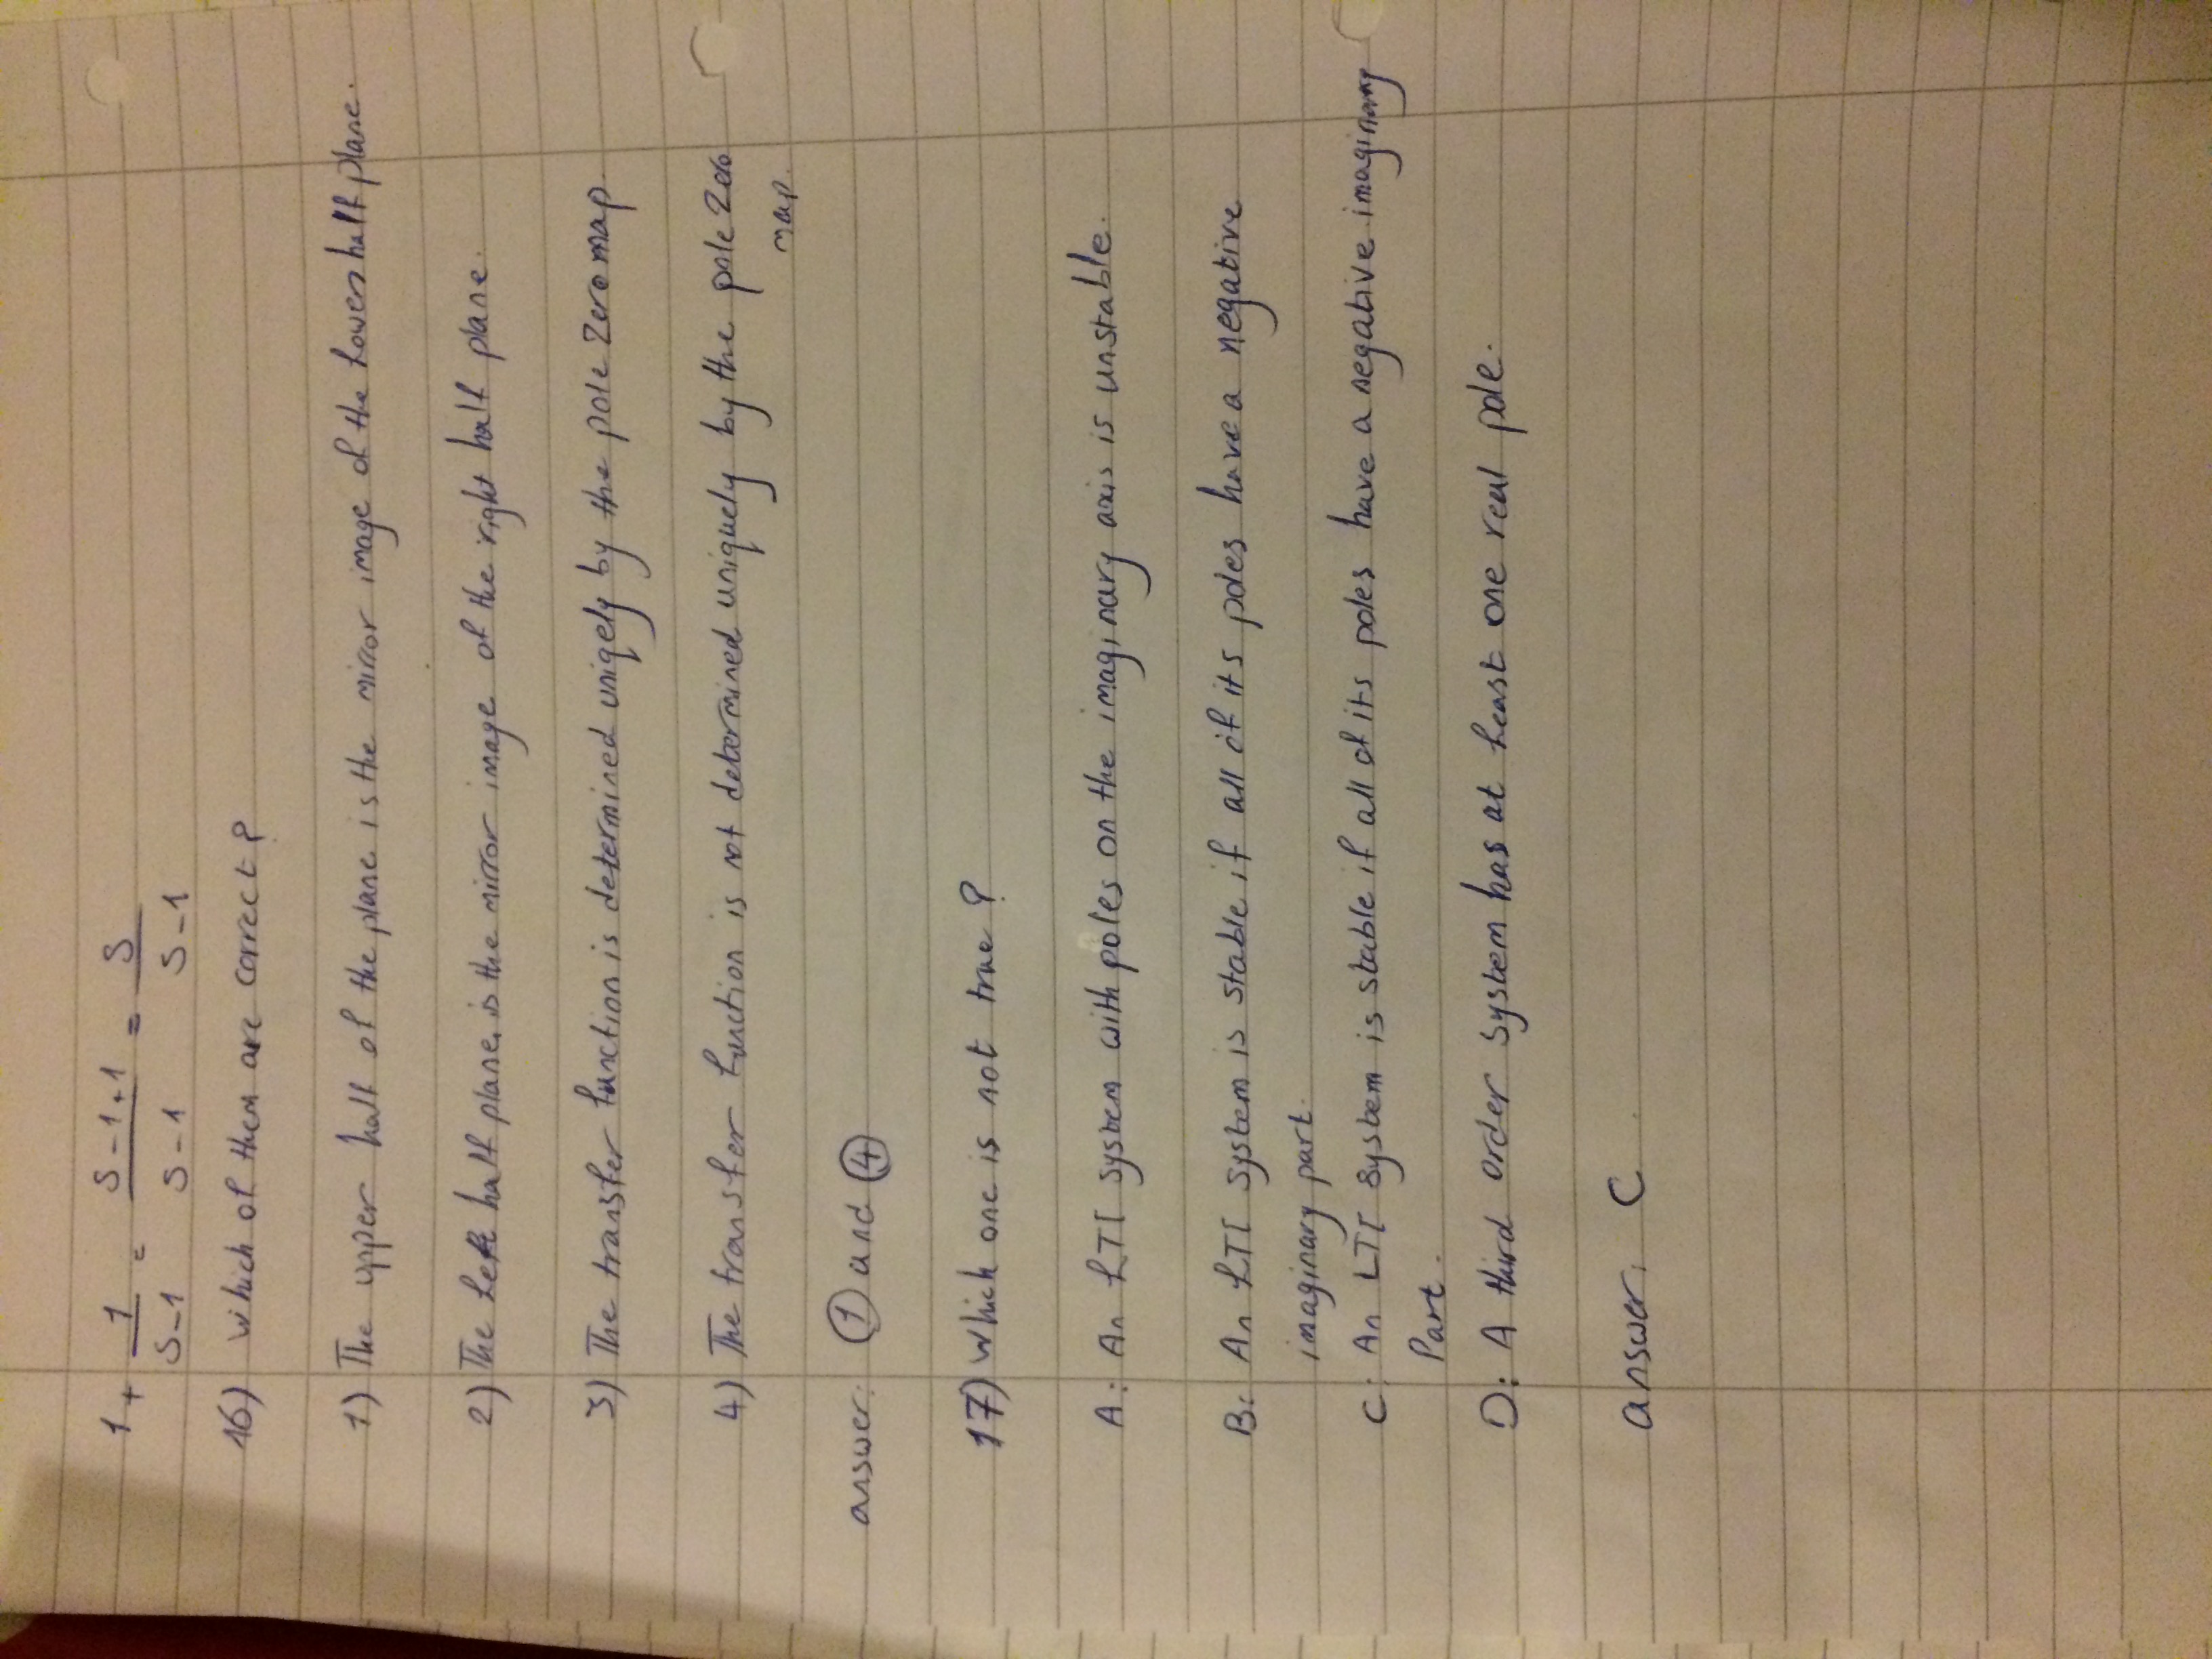 1 + 1/(S-1) = (S-1+1)/(S-1) = S/(S-1)
16) Which of them are correct?
1) The upper half of the plane is the mirror image of the Lower half plane.
2) The Left half plane, is the mirror image of the right half plane.
3) The transfer function is determined uniqely by the pole Zero map.
4) The transfer function is not determined uniquely by the pole Zero
map.
answer: ① and ④
17) Which one is not true?
A: An LTI system with poles on the imaginary axis is unstable.
B: An LTI system is stable if all of its poles have a negative
imaginary part.
C: An LTI system is stable if all of its poles have a negative imaginary
Part.
D: A third order system has at Least one real pole.
answer: C